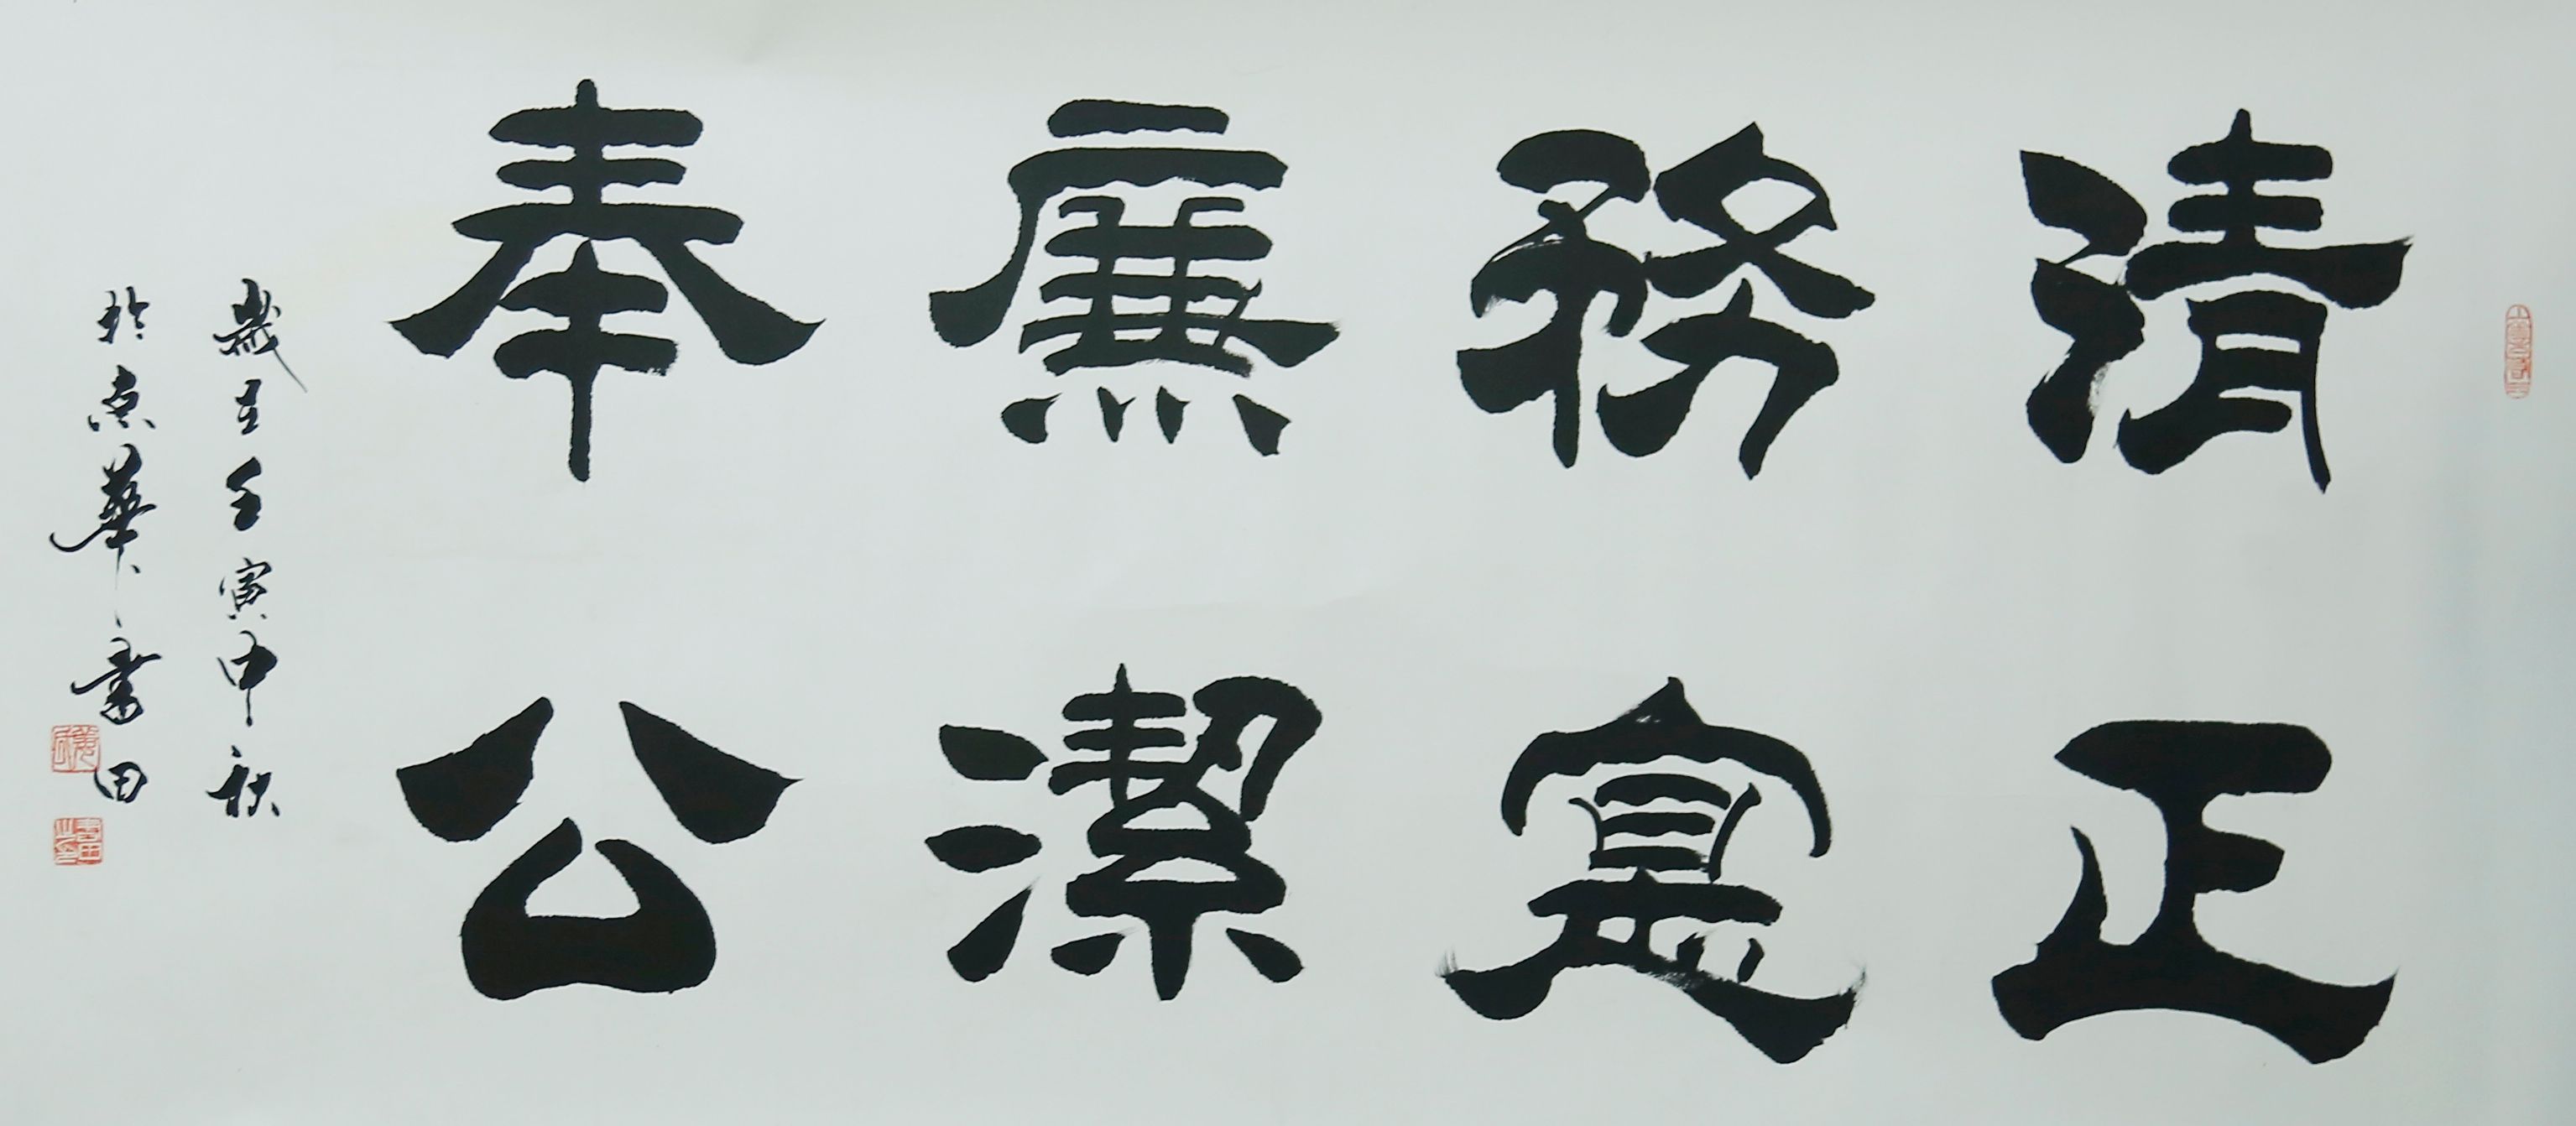 清正
務寔
廉潔
奉公
歲在壬寅中秋
於京華書田